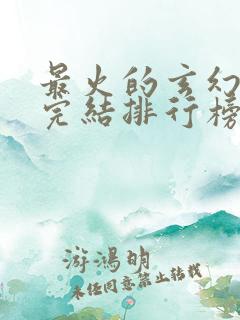 最火的玄幻
完結排行榜
游鴻明
未经同意禁止转载